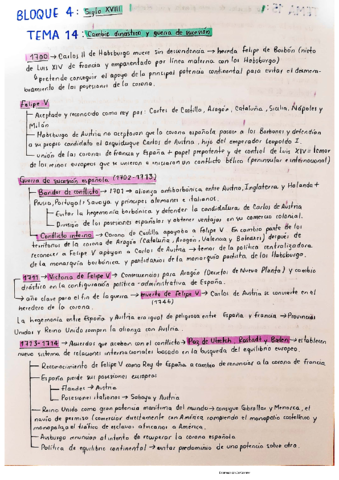 BLOQUE 4: Siglo XVIII
TEMA 14: Cambio dinástico y guerra de sucesión
1700 → Carlos II de Habsburgo muere sin descendencia → hereda Felipe de Borbón (nieto
de Luis XIV de Francia y emparentado por línea materna con los Habsburgo)
↳ pretende conseguir el apoyo de la principal potencia continental para evitar el desmem-
bramiento de las posesiones de la corona.
Felipe V
Aceptado y reconocido como rey por: Cortes de Castilla, Aragón, Cataluña, Sicilia, Nápoles y
Milán
Habsburgo de Austria no aceptaron que la corona española pasase a los Borbones y defendían
a su propio candidato el archiduque Carlos de Austria, hijo del emperador Leopoldo I.
unión de las coronas de Francia y España + papel prepotente y de control de Luis XIV = temor
de los reinos europeos que se unieron e iniciaron un conflicto bélico (peninsular e internacional)
Guerra de sucesión española (1702-1713)
Bandos de conflicto → 1701 → alianza antiborbónica entre Austria, Inglaterra y Holanda +
Prusia, Portugal, Saboya y príncipes alemanes e italianos.
Evitar la hegemonía borbónica y defender la candidatura de Carlos de Austria
División de las posesiones españolas y obtener ventajas en su comercio colonial.
Conflicto interno → Corona de Castilla apoyaba a Felipe V. En cambio parte de los
territorios de la corona de Aragón (Cataluña, Aragón, Valencia y Baleares) después de
reconocer a Felipe V apoyaron a Carlos de Austria → temor de la política centralizadora
de la monarquía borbónica, y partidarios de la monarquía pactista de los Habsburgo.
→ Victoria de Felipe V → Consecuencias para Aragón (Decretos de Nueva Planta) y cambio
drástico en la configuración política-administrativa de España.
→ año clave para el fin de la guerra → muerte de → Carlos de Austria se convierte en el
heredero de la corona.
La hegemonía entre España y Austria era igual de peligrosa entre España y Francia → Provincias
Unidas y Reino Unido rompen la alianza con Austria.
1713-1714 → Acuerdos que acaban con el conflicto → Paz de Utrecht, Rastadt y Baden → establecen
nuevo sistema de relaciones internacionales basado en la búsqueda del equilibrio europeo.
Reconocimiento de Felipe V como Rey de España a cambio de renunciar a la corona de Francia
España perdió sus posesiones europeas
Flandes → Austria
Posesiones italianas → Saboya y Austria
Reino Unido como gran potencia marítima del mundo → consigue Gibraltar y Menorca, el
navío de permiso (comerciar directamente con América rompiendo el monopolio castellano) y
monopoliza el tráfico de esclavos africanos a América.
renuncian al intento de recuperar la corona española
Política de equilibrio continental → evitar predominio de una potencia sobre otra.